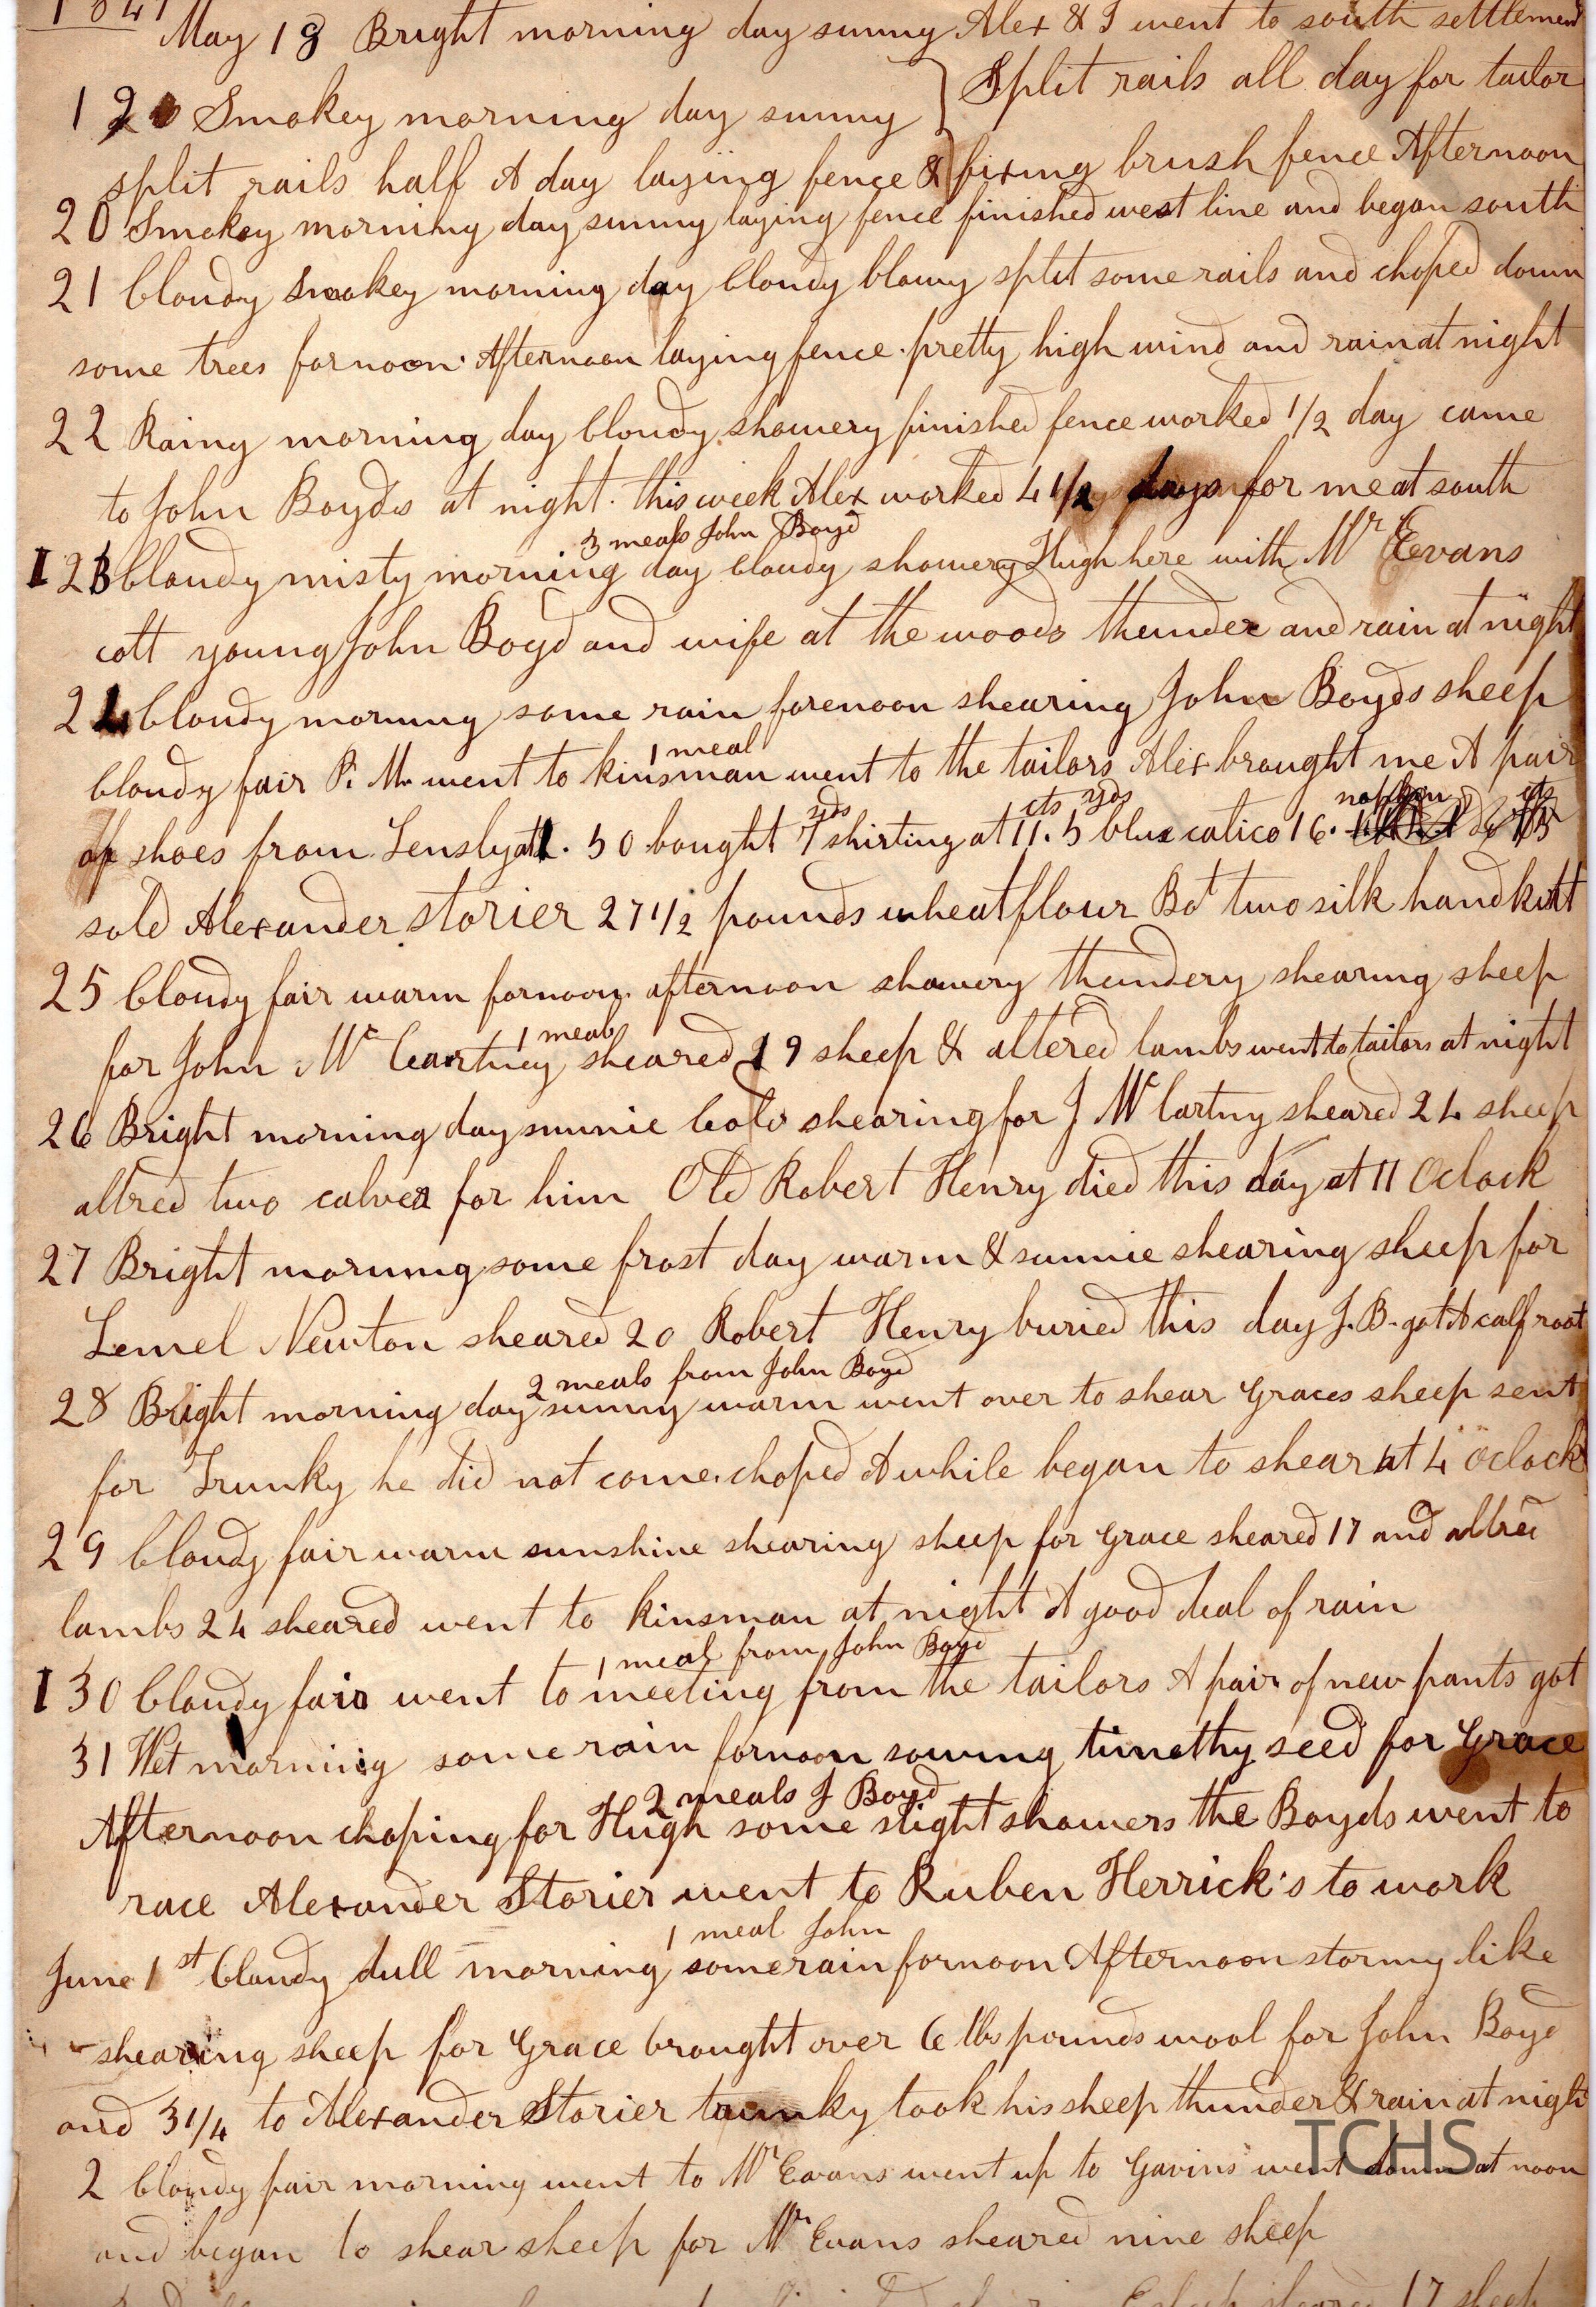 1841
May 18 Bright morning day sunny Alex & I went to south settlement
Split rails all day for tailor
19 Smokey morning day sunny
split rails half A day laying fence & fixing brush fence Afternoon
20 Smokey morning day sunny laying fence finished west line and began south
21 Cloudy smokey morning day Cloudy blowy split some rails and choped down
some trees fornoon Afternoon laying fence pretty high wind and rain at night
22 Rainy morning day Cloudy showery finished fence worked 1/2 day came
to John Boyds at night this week Alex worked 4 1/2 days for me at south
3 meals John Boyd
1 23 Cloudy misty morning day cloudy showery Hugh here with Mr Evans
cott young John Boyd and wife at the woods thunder and rain at night
24 Cloudy morning some rain forenoon shearing John Boyds sheep
1 meal
Cloudy fair P. M. went to kinsman went to the tailors Alex brought me A pair
yds cts yds cts
of shoes from Lensly at 1.50 bought 7 shirting at 11. 5 blue calico 16.
sold Alexander storier 27 1/2 pounds wheat flour Bot two silk
25 Cloudy fair warm fornoon afternoon showery thundery shearing sheep
1 meal
for John Mc Cartney sheared 19 sheep & altered lambs went to tailors at night
26 Bright morning day sunnie Cold shearing for J Mc Cartny sheared 24 sheep
altred two calves for him Old Robert Henry died this day at 11 Oclock
27 Bright morning some frost day warm & sunnie shearing sheep for
Lemel Newton sheared 20 Robert Henry buried this day J. B. got A calf
2 meals from John Boyd
28 Bright morning day sunny warm went over to shear Graces sheep sent
for Trunky he did not come. choped A while began to shear at 4 Oclock
29 Cloudy fair warm sunshine shearing sheep for Grace sheared 17 and altred
lambs 24 sheared went to kinsman at night A good deal of rain
1 meal from John Boyd
1 30 Cloudy fair went to meeting from the tailors A pair of new pants got
31 Wet morning some rain fornoon sowing timothy seed for Grace
2 meals J Boyd
Afternoon choping for Hugh some slight showers the Boyds went to
race Alexander Storier went to Ruben Herrick's to work
1 meal John
June 1st Cloudy dull morning some rain fornoon Afternoon stormy like
shearing sheep for Grace brought over 6 lbs pounds wool for John Boyd
and 3 1/4 to Alexander Storier trunky took his sheep thunder & rain at night
TCHS
2 Cloudy fair morning went to Mr Evans went up to Gavins went down at noon
and began to shear sheep for Mr Evans sheared nine sheep
sheared 17 sheep